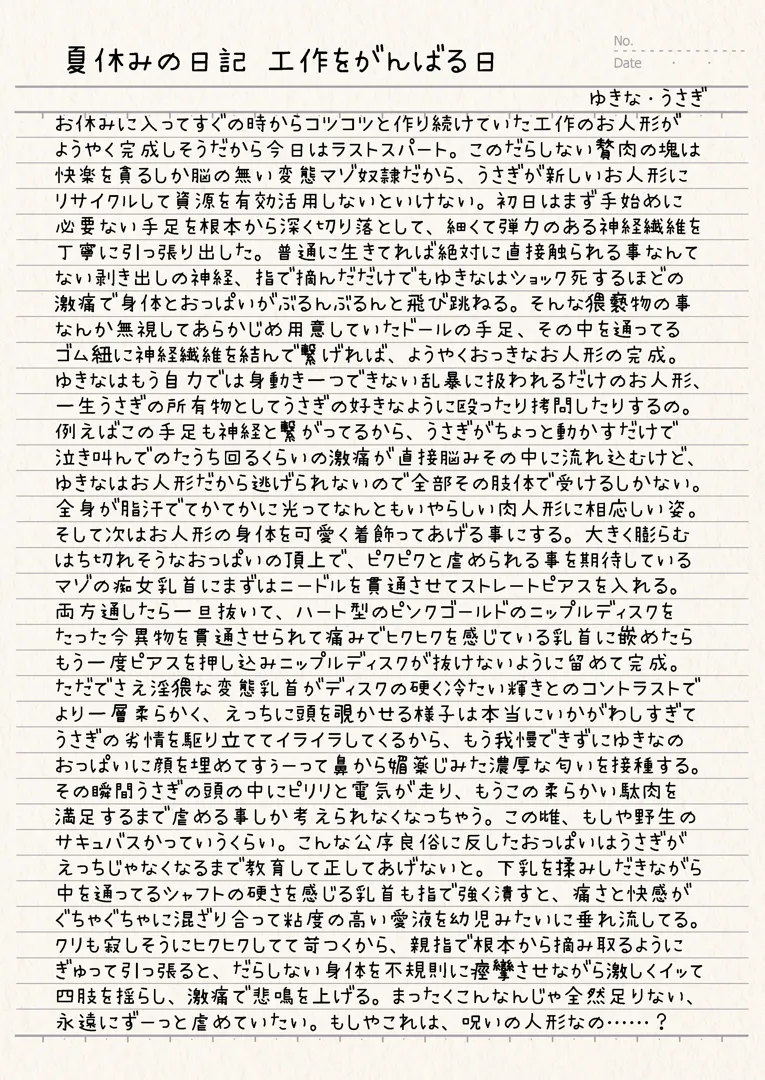 夏休みの日記 工作をがんばる日
No.
Date ・ ・
ゆきな・うさぎ
お休みに入ってすぐの時からコツコツと作り続けていた工作のお人形が
ようやく完成しそうだから今日はラストスパート。このだらしない贅肉の塊は
快楽を貪るしか脳の無い変態マゾ奴隷だから、うさぎが新しいお人形に
リサイクルして資源を有効活用しないといけない。初日はまず手始めに
必要ない手足を根本から深く切り落として、細くて弾力のある神経繊維を
丁寧に引っ張り出した。普通に生きてれば絶対に直接触られる事なんて
ない剥き出しの神経、指で摘んだだけでもゆきなはショック死するほどの
激痛で身体とおっぱいがぶるんぶるんと飛び跳ねる。そんな猥褻物の事
なんか無視してあらかじめ用意していたドールの手足、その中を通ってる
ゴム紐に神経繊維を結んで繋げれば、ようやくおっきなお人形の完成。
ゆきなはもう自力では身動き一つできない乱暴に扱われるだけのお人形、
一生うさぎの所有物としてうさぎの好きなように殴ったり拷問したりするの。
例えばこの手足も神経と繋がってるから、うさぎがちょっと動かすだけで
泣き叫んでのたうち回るくらいの激痛が直接脳みその中に流れ込むけど、
ゆきなはお人形だから逃げられないので全部その肢体で受けるしかない。
全身が脂汗でてかてかに光ってなんともいやらしい肉人形に相応しい姿。
そして次はお人形の身体を可愛く着飾ってあげる事にする。大きく膨らむ
はち切れそうなおっぱいの頂上で、ピクピクと虐められる事を期待している
マゾの痴女乳首にまずはニードルを貫通させてストレートピアスを入れる。
両方通したら一旦抜いて、ハート型のピンクゴールドのニップルディスクを
たった今異物を貫通させられて痛みでヒクヒクを感じている乳首に嵌めたら
もう一度ピアスを押し込みニップルディスクが抜けないように留めて完成。
ただでさえ淫猥な変態乳首がディスクの硬く冷たい輝きとのコントラストで
より一層柔らかく、えっちに頭を覗かせる様子は本当にいかがわしすぎて
うさぎの劣情を駆り立ててイライラしてくるから、もう我慢できずにゆきなの
おっぱいに顔を埋めてすぅーって鼻から媚薬じみた濃厚な匂いを接種する。
その瞬間うさぎの頭の中にピリリと電気が走り、もうこの柔らかい駄肉を
満足するまで虐める事しか考えられなくなっちゃう。この雌、もしや野生の
サキュバスかっていうくらい。こんな公序良俗に反したおっぱいはうさぎが
えっちじゃなくなるまで教育して正してあげないと。下乳を揉みしだきながら
中を通ってるシャフトの硬さを感じる乳首も指で強く潰すと、痛さと快感が
ぐちゃぐちゃに混ざり合って粘度の高い愛液を幼児みたいに垂れ流してる。
クリも寂しそうにヒクヒクしてて苛つくから、親指で根本から摘み取るように
ぎゅって引っ張ると、だらしない身体を不規則に痙攣させながら激しくイッて
四肢を揺らし、激痛で悲鳴を上げる。まったくこんなんじゃ全然足りない、
永遠にずーっと虐めていたい。もしやこれは、呪いの人形なの……？